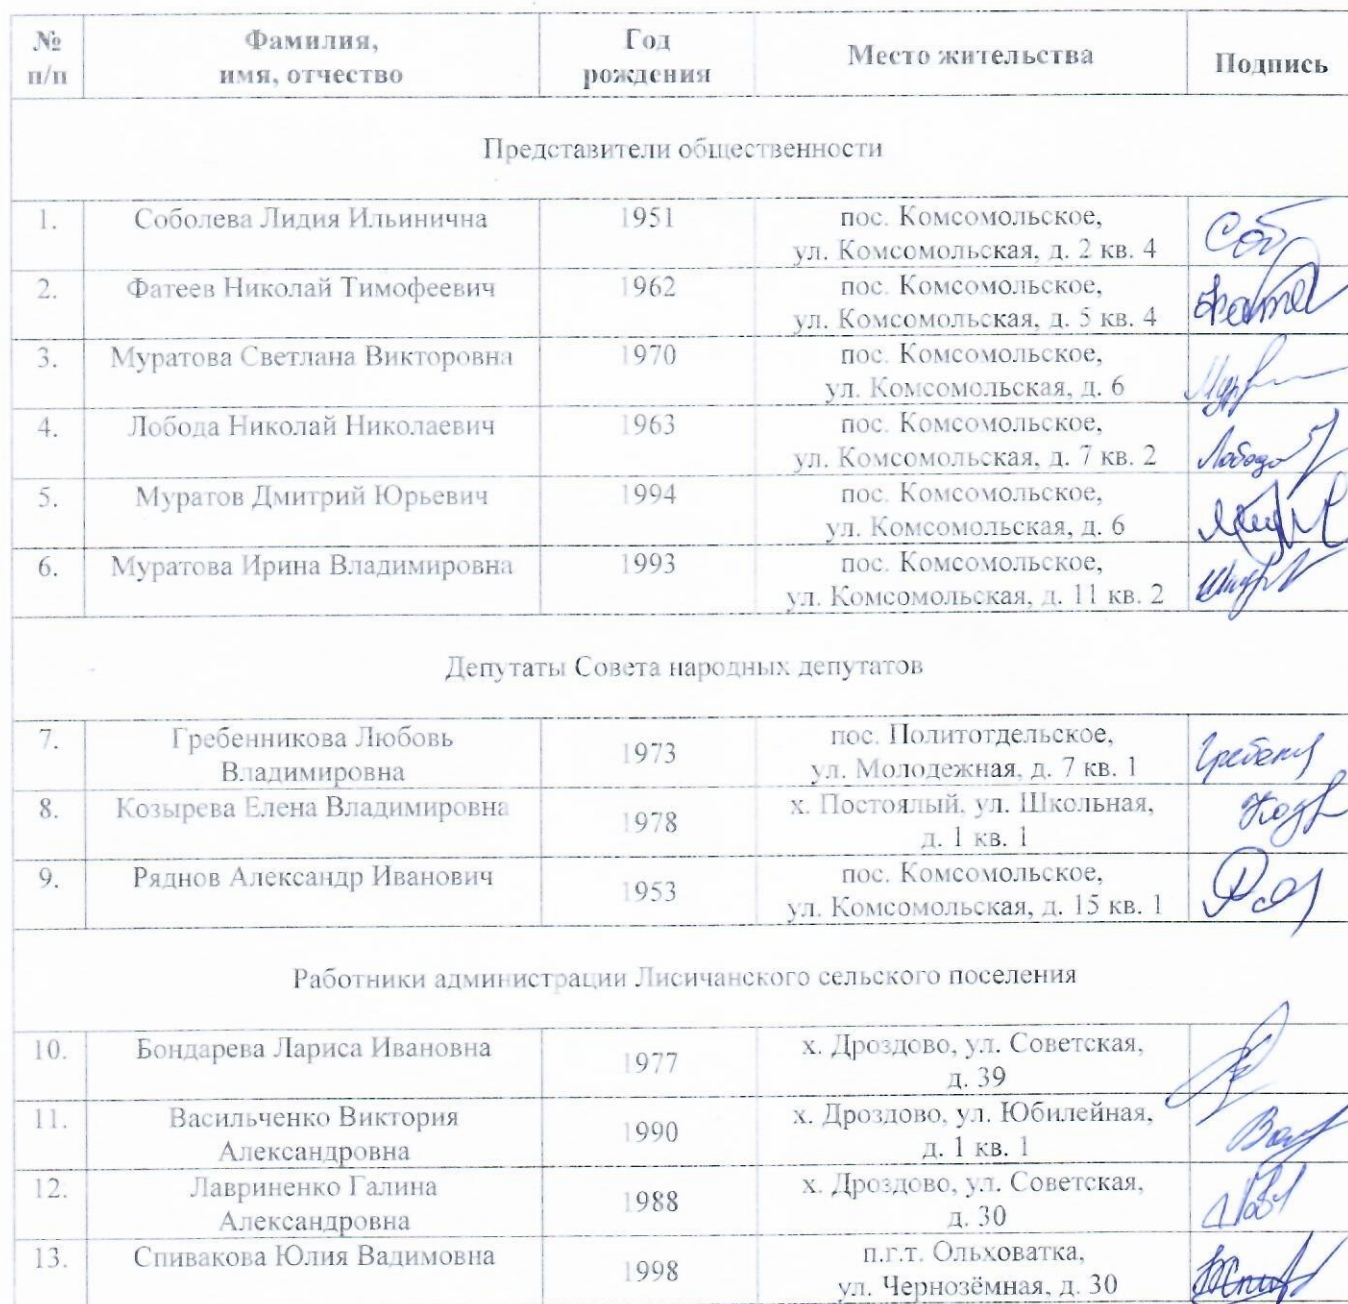 № п/п Фамилия, имя, отчество Год рождения Место жительства Подпись
Представители общественности
1. Соболева Лидия Ильинична 1951 пос. Комсомольское,
ул. Комсомольская, д. 2 кв. 4
2. Фатеев Николай Тимофеевич 1962 пос. Комсомольское,
ул. Комсомольская, д. 5 кв. 4
3. Муратова Светлана Викторовна 1970 пос. Комсомольское,
ул. Комсомольская, д. 6
4. Лобода Николай Николаевич 1963 пос. Комсомольское,
ул. Комсомольская, д. 7 кв. 2
Лобода
5. Муратов Дмитрий Юрьевич 1994 пос. Комсомольское,
ул. Комсомольская, д. 6
6. Муратова Ирина Владимировна 1993 пос. Комсомольское,
ул. Комсомольская, д. 11 кв. 2
Депутаты Совета народных депутатов
7. Гребенникова Любовь
Владимировна
1973
пос. Политотдельское,
ул. Молодежная, д. 7 кв. 1
8. Козырева Елена Владимировна
1978
х. Постоялый, ул. Школьная,
д. 1 кв. 1
9. Ряднов Александр Иванович
1953
пос. Комсомольское,
ул. Комсомольская, д. 15 кв. 1
Работники администрации Лисичанского сельского поселения
10. Бондарева Лариса Ивановна
1977
х. Дроздово, ул. Советская,
д. 39
11. Васильченко Виктория
Александровна
1990
х. Дроздово, ул. Юбилейная,
д. 1 кв. 1
12. Лавриненко Галина
Александровна
1988
х. Дроздово, ул. Советская,
д. 30
13. Спивакова Юлия Вадимовна
1998
п.г.т. Ольховатка,
ул. Чернозёмная, д. 30